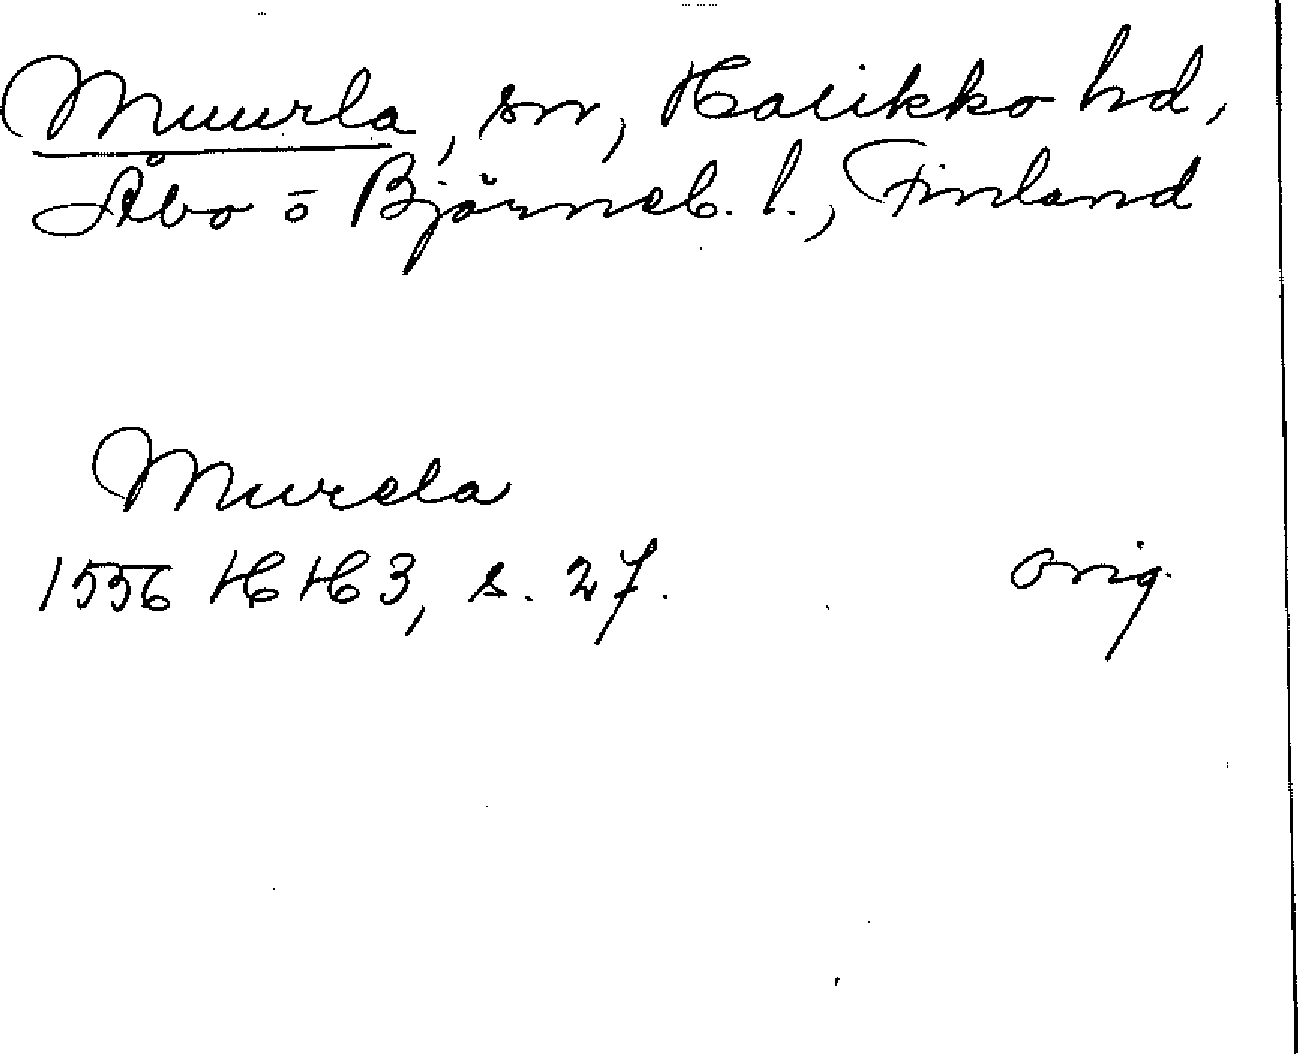 Muurla, sn, Halikko hd,
Åbo o Björneb. l., Finland
Murela
1556 HH3, s. 27.
orig.